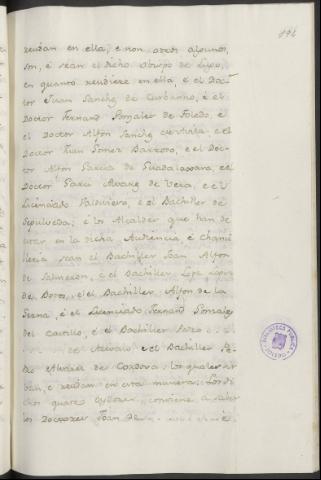 446
residan en ella, e non otros algunos,
son, é sean el dicho Obispo de Lugo,
en quanto residiere en ella, é el Doc-
tor Juan Sanchz de Zurbanno, é el
Doctor Fernand Gonzalez de Toledo, é
el Doctor Alfon Sanchz e el
Doctor Juan Gomez Barroso, e el Doc-
tor Alfon Garcia de Guadalaxara, e el
Doctor Garci Alvarez de Vera, e el
Licenciado Valdivieso, é el Bachiller de
Sepulveda; é los Alcaldes que han de
estar en la dicha Audiencia, é Chanci
lleria sean el Bachiller Joan Alfon
de Salmeron, e el Bachiller Lope Lopez
de Boros, e el Bachiller Alfon de la
Serna, é el Licenciado Fernand Gonzalez
del Castillo, é el Bachiller
de Arevalo e el Bachiller Pe-
dro Alvarez de Cordova: los quales es-
tén, é residan en esta manera: Los di-
chos quatro Oydores, conviene a saber
los Doctores Joan é
BIBLIOTECA PUBLICA
TOLEDO